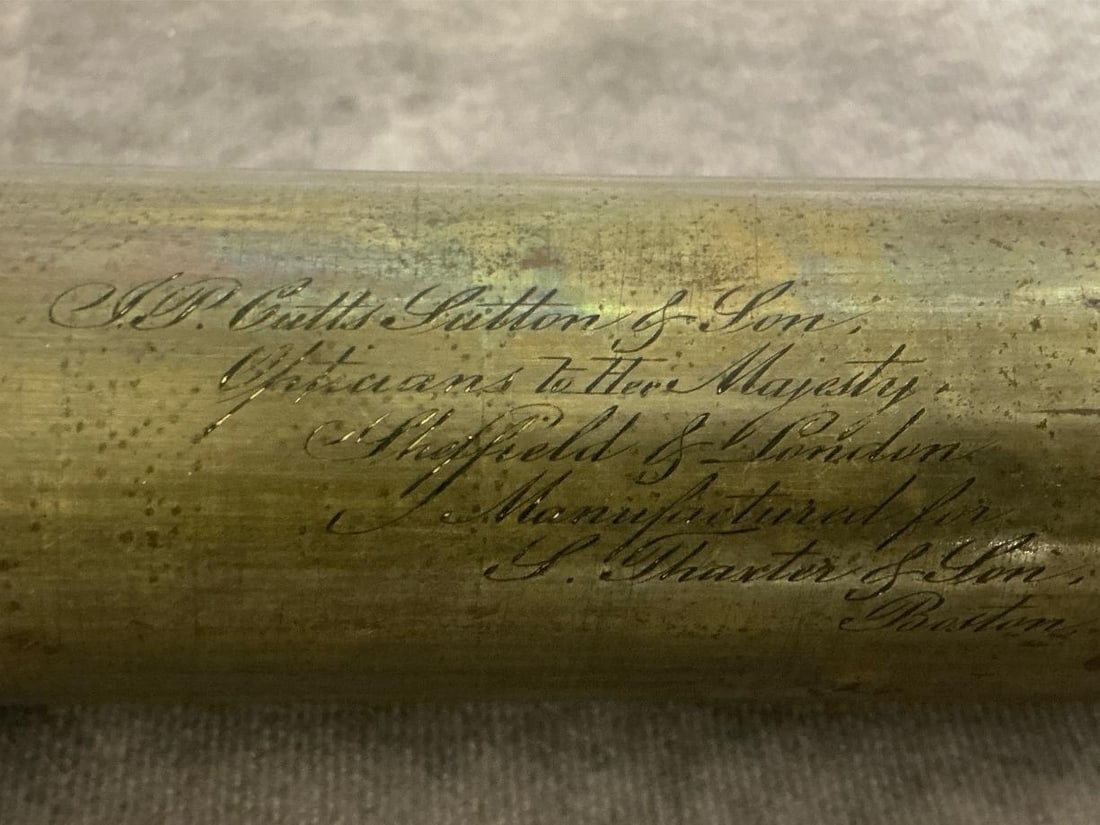 J.P. Cutts Sutton & Son.
Opticians to Her Majesty.
Sheffield & London
Manufactured for
S. Thaxter & Son,
Boston